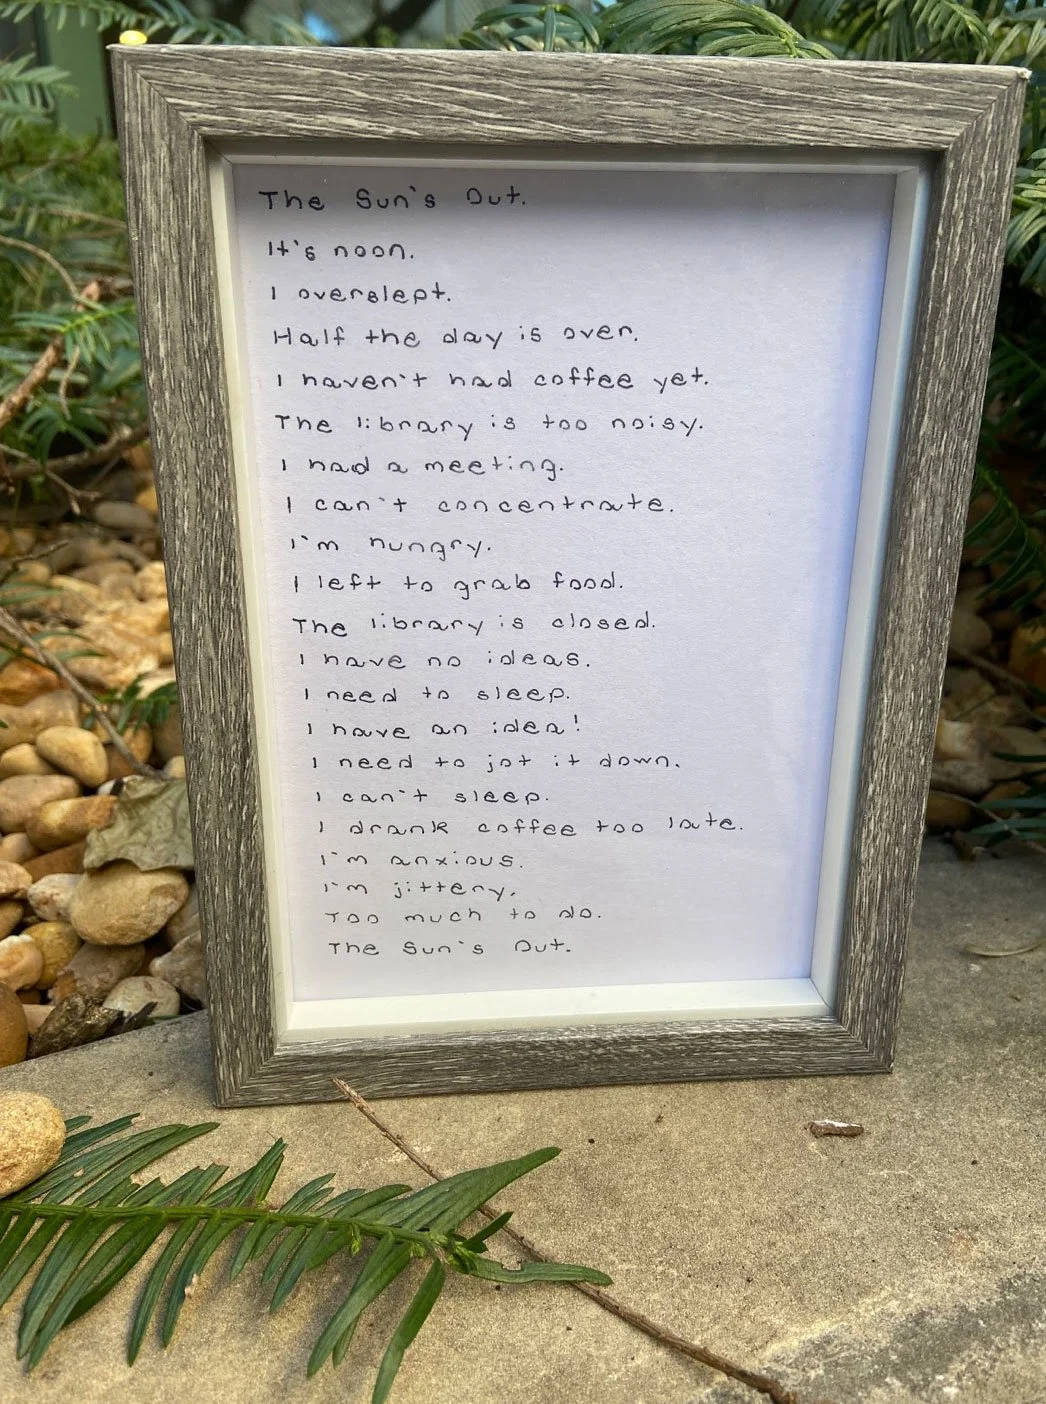 The Sun's Out.
It's noon.
I overslept.
Half the day is over.
I haven't had coffee yet.
The library is too noisy.
I had a meeting.
I can't concentrate.
I'm hungry.
I left to grab food.
The library is closed.
I have no ideas.
I need to sleep.
I have an idea!
I need to jot it down.
I can't sleep.
I drank coffee too late.
I'm anxious.
I'm jittery.
Too much to do.
The Sun's Out.